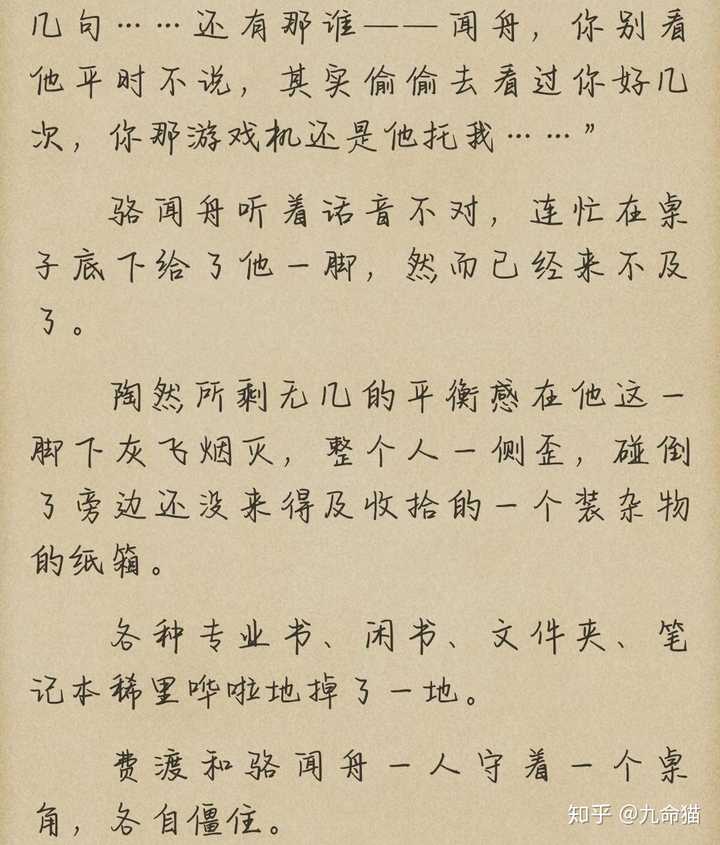 几句……还有那谁——闻舟，你别看
他平时不说，其实偷偷去看过你好几
次，你那游戏机还是他托我……”
骆闻舟听着话音不对，连忙在桌
子底下给了他一脚，然而已经来不及
了。
陶然所剩无几的平衡感在他这一
脚下灰飞烟灭，整个人一侧歪，碰倒
了旁边还没来得及收拾的一个装杂物
的纸箱。
各种专业书、闲书、文件夹、笔
记本稀里哗啦地掉了一地。
费渡和骆闻舟一人守着一个桌
角，各自僵住。
知乎 @九命猫